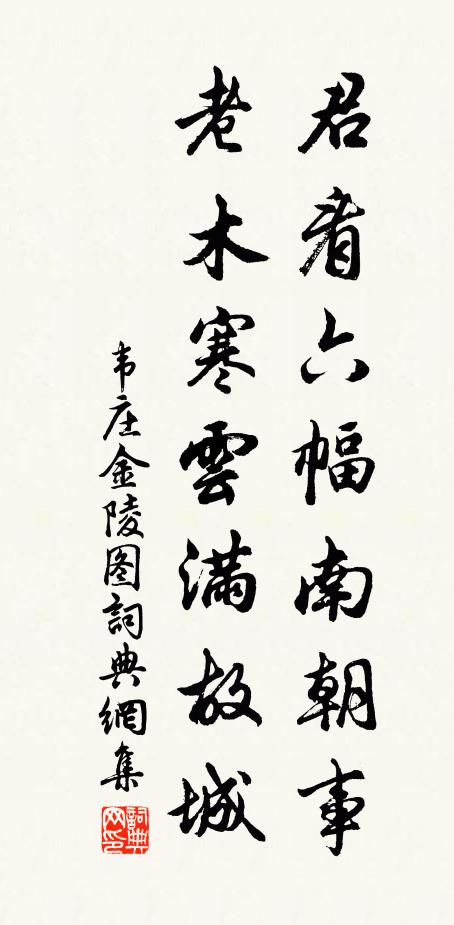 君看六幅南朝事
老木寒雲滿故城
韦庄金陵图詞典網集
詞典网印